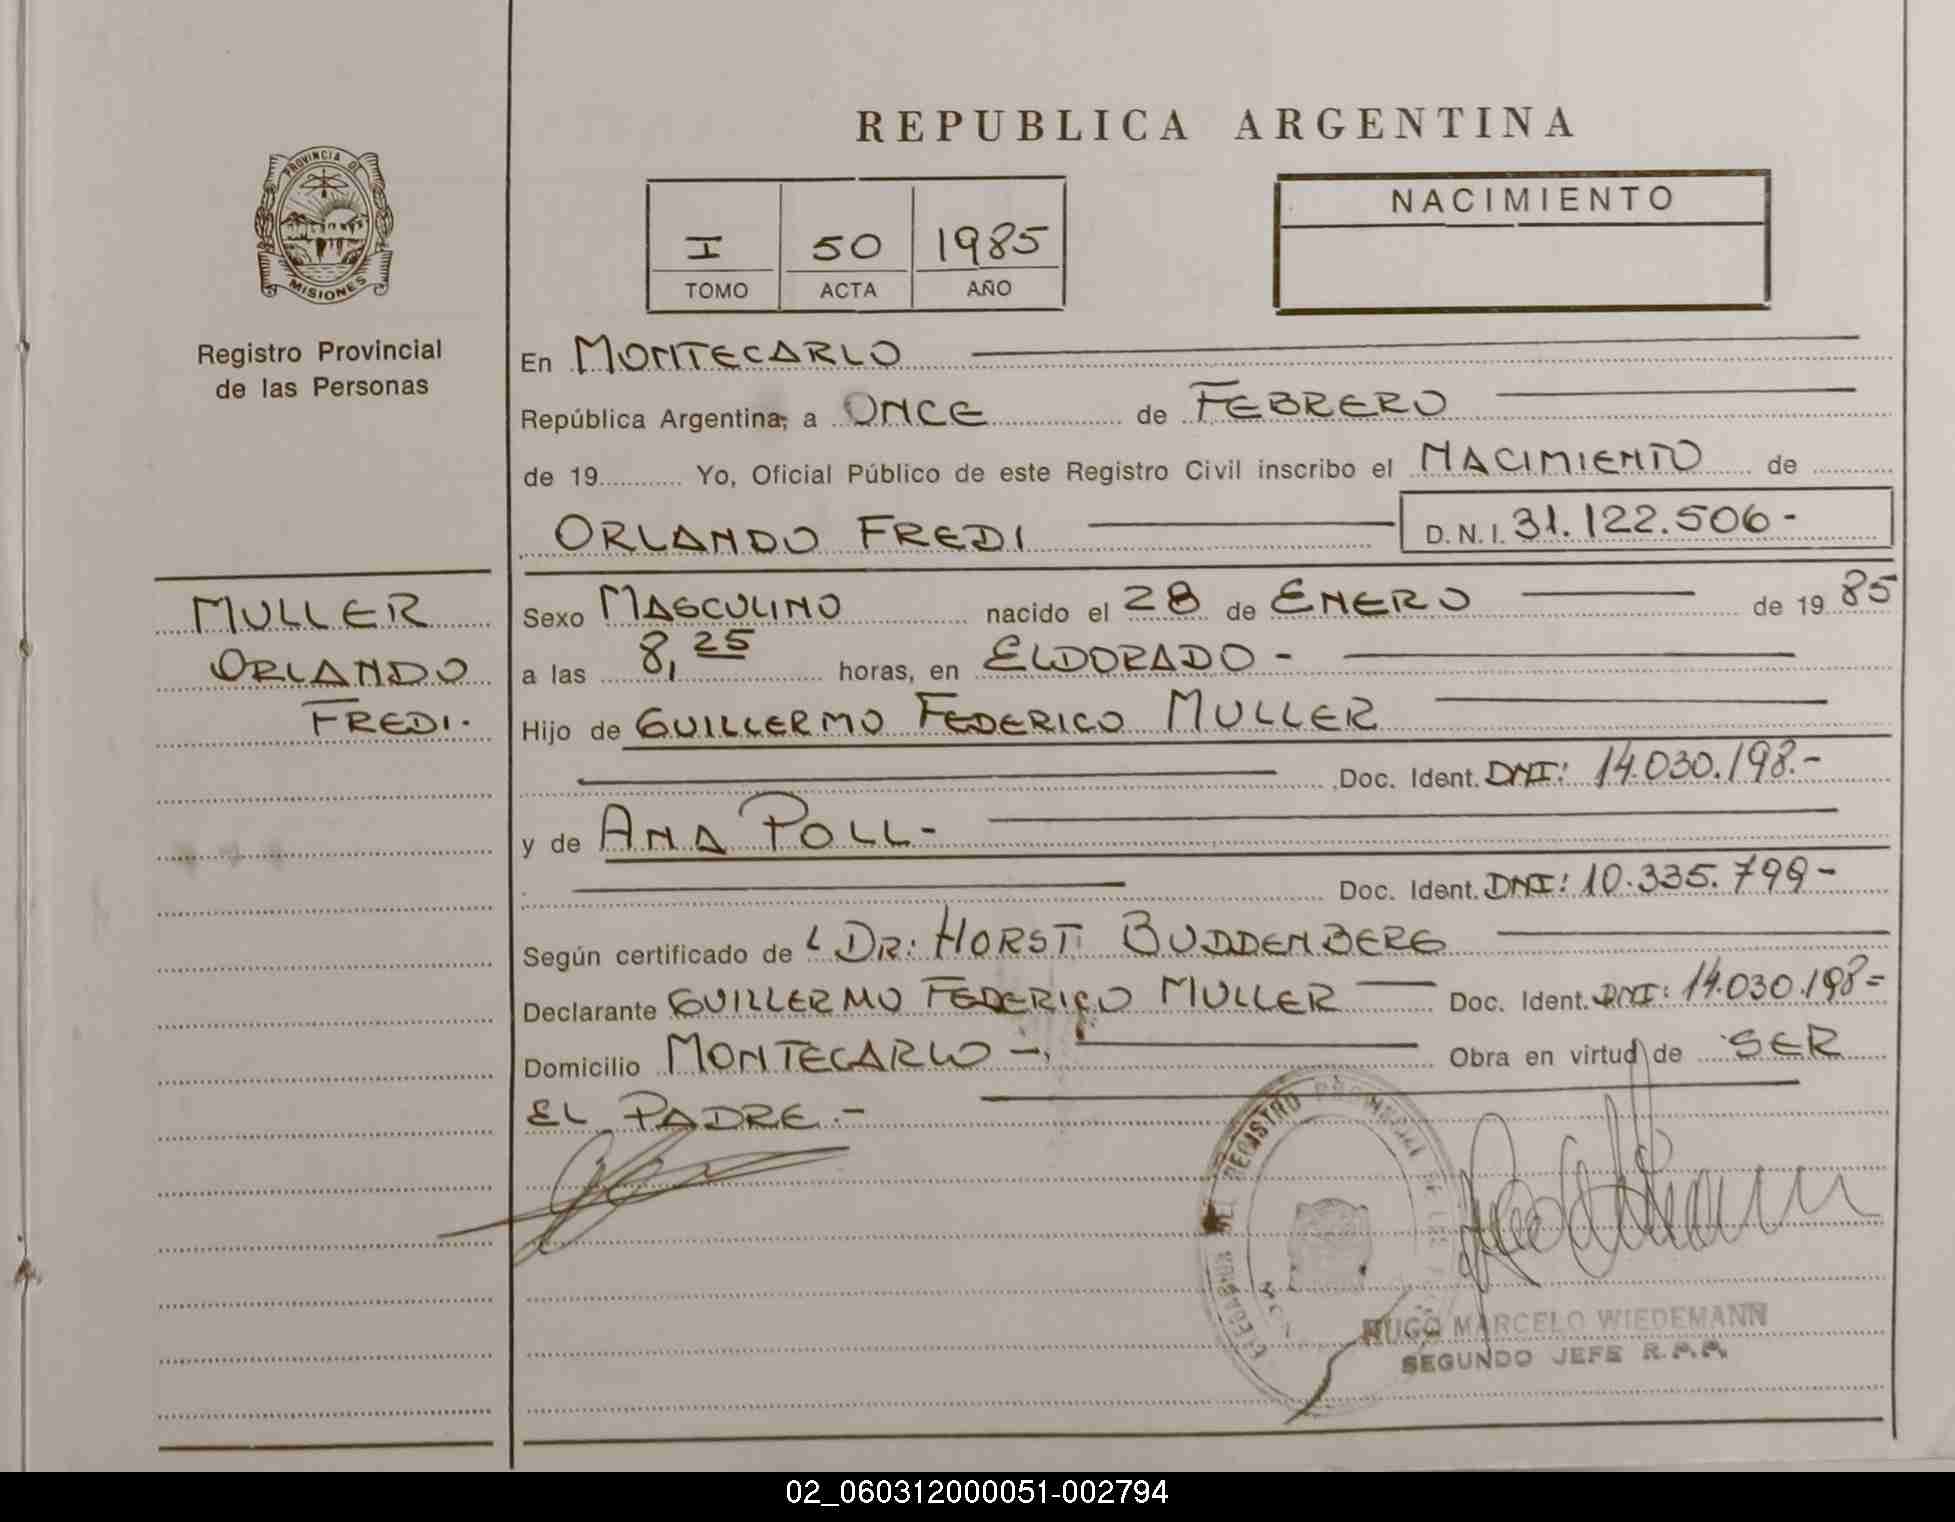 REPUBLICA ARGENTINA
PROVINCIA DE
MISIONES
Registro Provincial
de las Personas
I 50 1985
TOMO ACTA AÑO
NACIMIENTO
En MONTECARLO
República Argentina, a ONCE de FEBRERO
de 19 Yo, Oficial Público de este Registro Civil inscribo el NACIMIENTO de
ORLANDO FREDI D.N.I. 31.122.506-
MULLER
ORLANDO
FREDI.
Sexo MASCULINO nacido el 28 de ENERO de 19 85
a las 8,25 horas, en ELDORADO -
Hijo de GUILLERMO FEDERICO MULLER
Doc. Ident. DNI: 14.030.198.-
y de ANA POLL-
Doc. Ident. DNI: 10.335.799-
Según certificado de DR: HORST BUDDENBERG
Declarante GUILLERMO FEDERICO MULLER Doc. Ident. DNI: 14.030.198=
Domicilio MONTECARLO -. Obra en virtud de SER
EL PADRE.-
REGISTRO PROVINCIAL DE
HUGO MARCELO WIEDEMANN
SEGUNDO JEFE R.P.P.
02_060312000051-002794